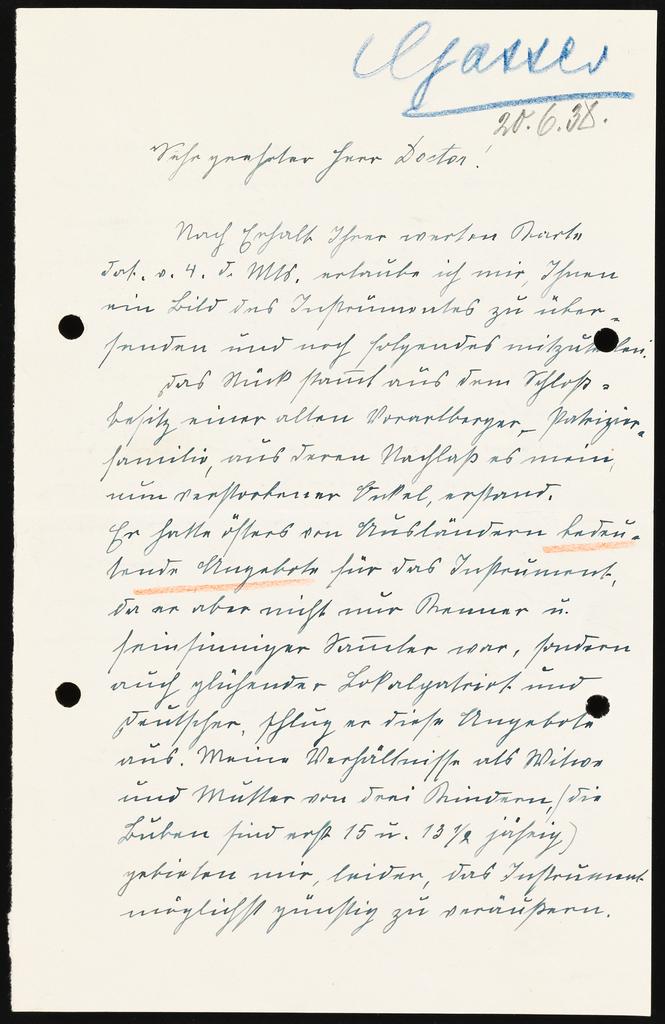 Gasser
20.6.38.
Sehr geehrter Herr Doctor!
Nach Erhalt Ihrer werten Karte
dat. v. 4. d. Mts. erlaube ich mir, Ihnen
ein Bild des Instrumentes zu über-
senden und noch folgendes mitzuteilen.
Das Stück stam̅t aus dem Schloß-
besitz einer alten Vorarlberger- Patrizier-
familie, aus deren Nachlaß es mein,
nun verstorbener Onkel, erstand.
Er hatte öfters von Ausländern bedeu-
tende Angebote für das Instrument,
da er aber nicht nur Kenner u.
feinsinniger Sam̅ler war, sondern
auch glühender Lokalpatriot und
Deutscher, schlug er diese Angebote
aus. Meine Verhältnisse als Witwe
und Mutter von drei Kindern, (die
Buben sind erst 15 u. 13 1/2 jährig)
gebieten mir, leider, das Instrument
möglichst günstig zu veräußern.